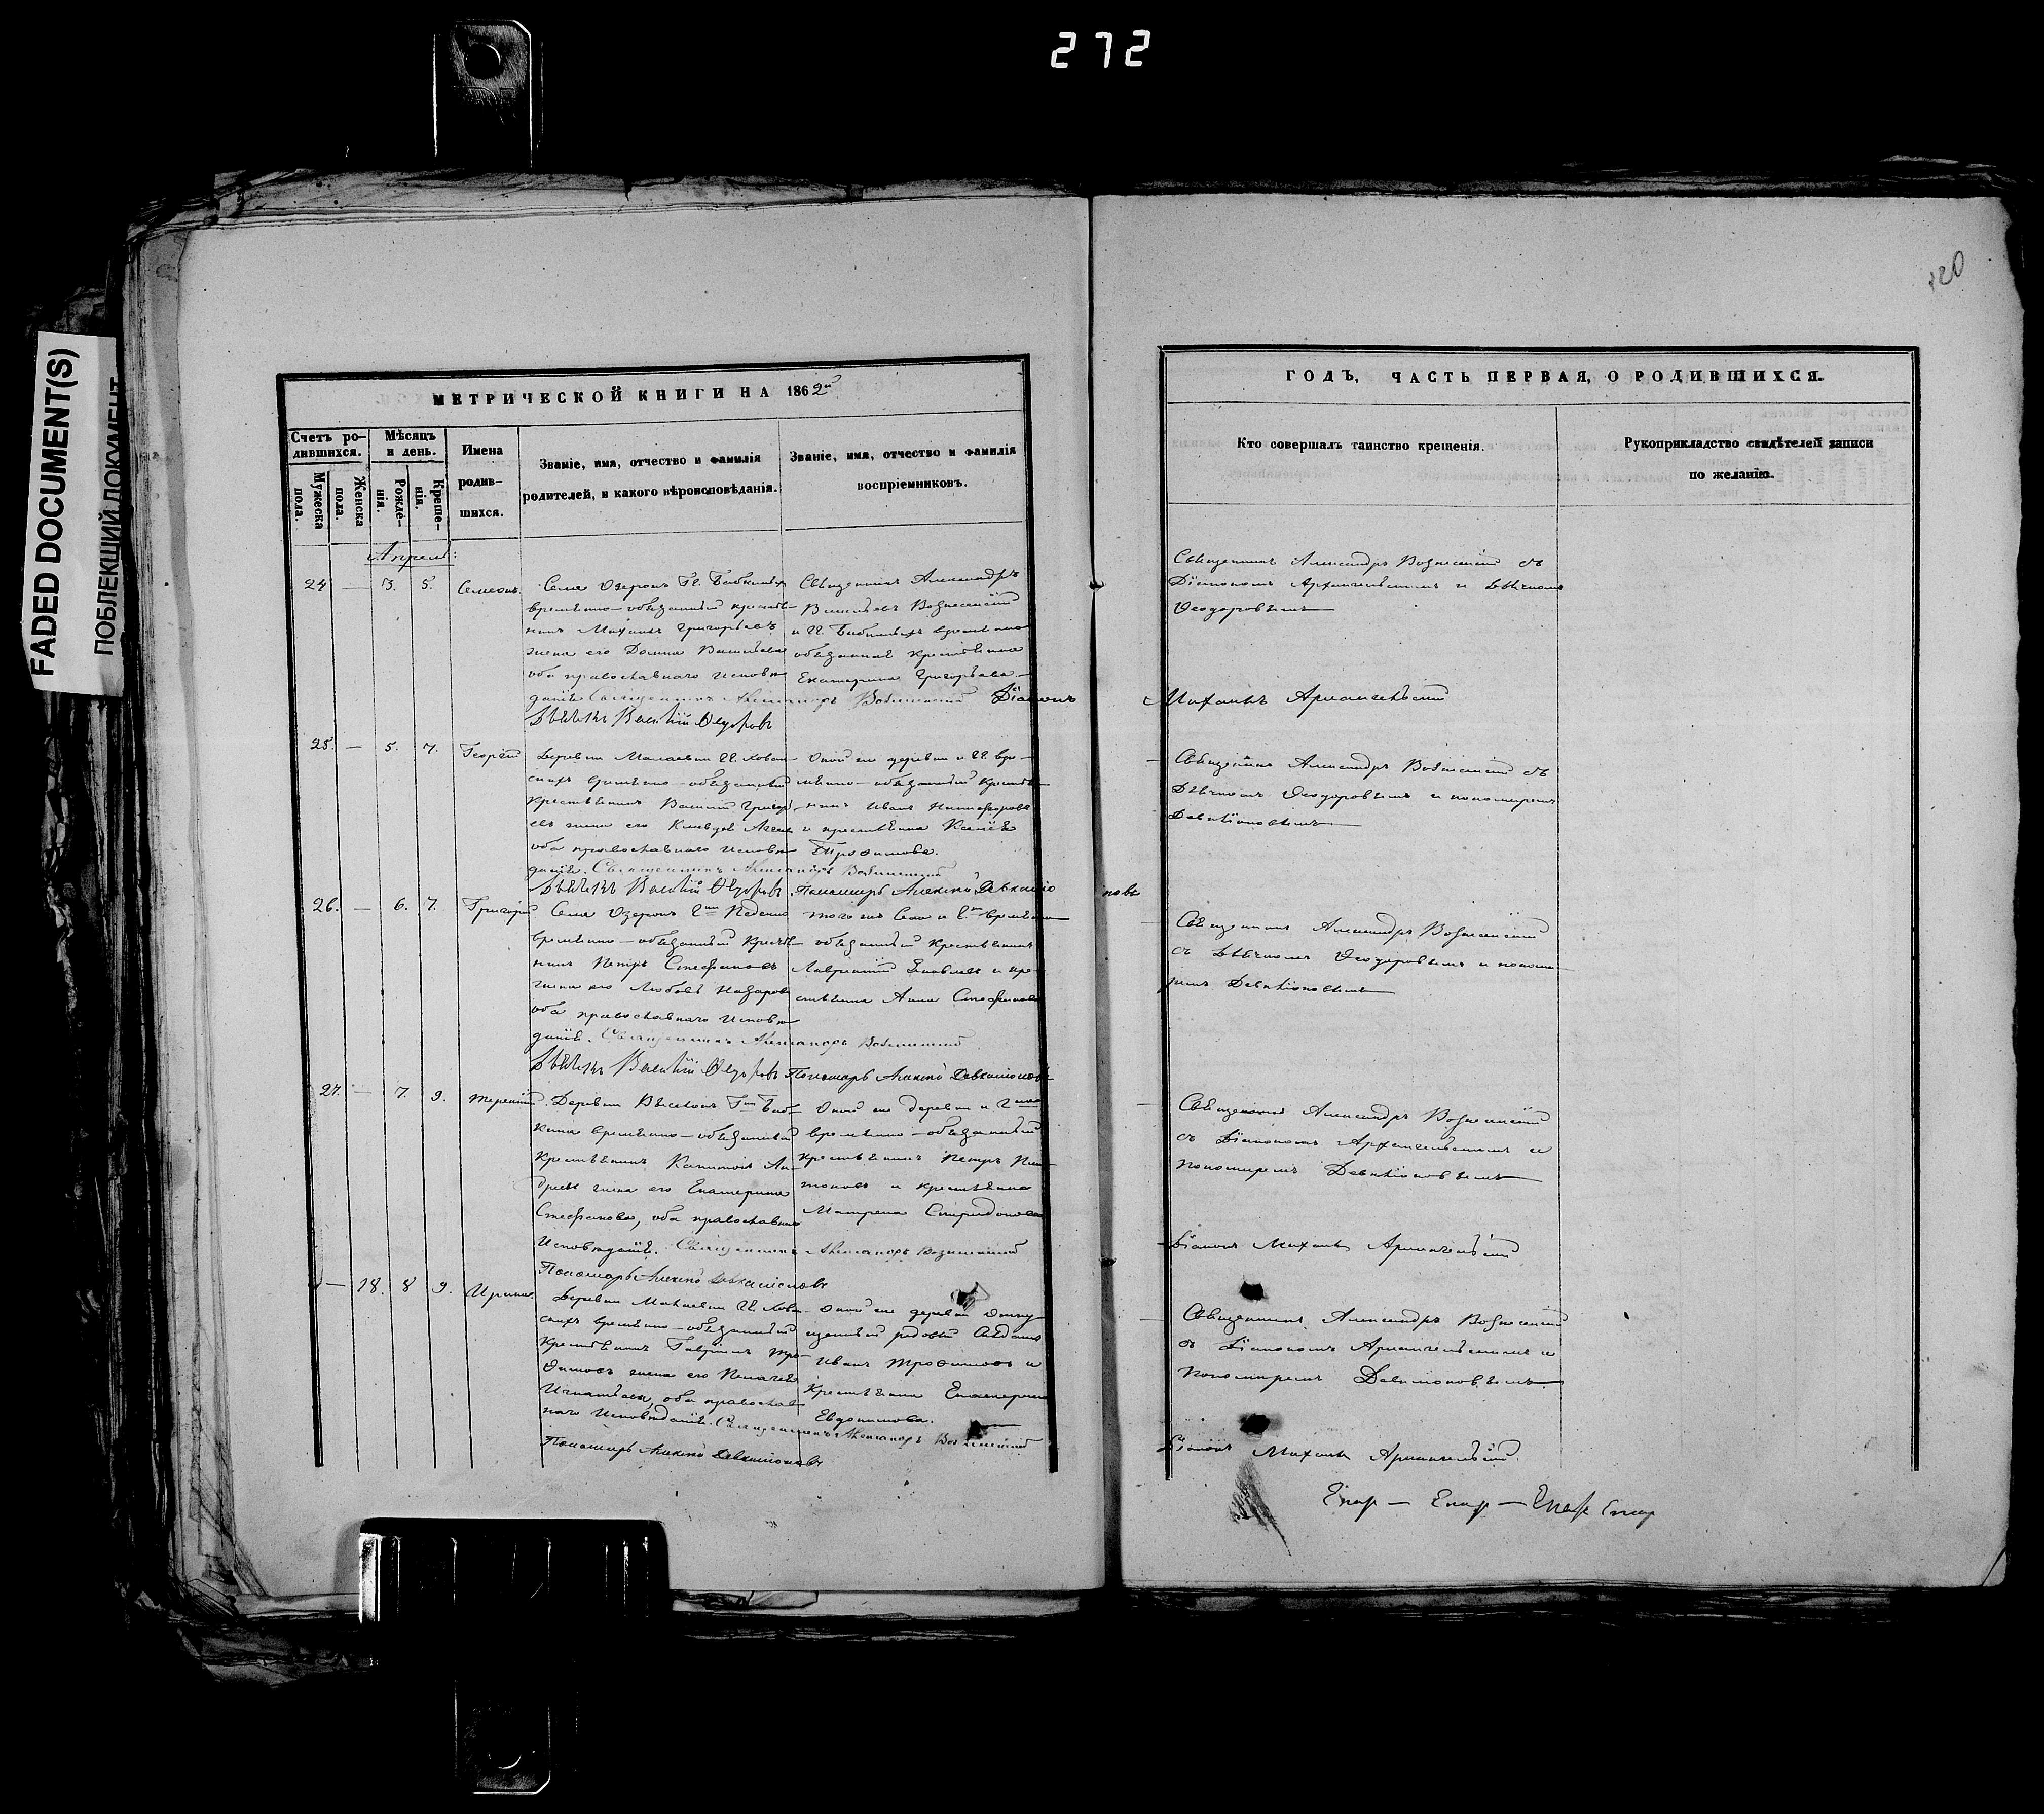 272
FADED DOCUMENT(S)
ПОБЛЕКШИЙ ДОКУМЕНТ
МЕТРИЧЕСКОЙ КНИГИ НА 1862й
Счетъ ро-
дившихся.
Мѣсяцъ
и день.
Имена
родив-
шихся.
Званіе, имя, отчество и фамилія
родителей, и какого вѣроисповѣданія.
Званіе, имя, отчество и фамилія
воспріемниковъ.
Мужеска
пола.
Женска
пола.
Рожде-
нія.
Креще-
нія.
Апрель:
24 — 3. 5. Семеонъ
Села Озеронъ Гг.
временно-обязанный крестья-
нинъ Михаилъ Григорьевъ
жена его Домна Васильева
оба православнаго исповѣ-
данія. Священникъ Александръ Вознесенскій Діаконъ
Дьячекъ Василій Ѳедоровъ
Священникъ Александръ
Васильевъ Вознесенскій
временно
обязанная крестьянка
Екатерина Григорьева
25. — 5. 7. Георгій
Деревни
временно-обязанный
крестьянинъ Василій Григорь-
евъ жена его
оба православнаго исповѣ-
данія. Священникъ Александръ Вознесенскій
Дьячекъ Василій Ѳедоровъ. Пономарь Алексѣй Девкаліо
новъ
Оной же деревни и Гг. вре-
менно-обязанный крестья-
нинъ Иванъ Никифоровъ
и крестьянка Ксенія
Трофимова.
26. — 6. 7. Григорій
Села Озеронъ
временно-обязанный крестья-
нинъ Петръ Стефановъ
жена его Любовь Назарова
оба православнаго исповѣ-
данія. Священникъ Александръ Вознесенскій
Дьячекъ Василій Ѳедоровъ Пономарь Алексѣй Девкаліоновъ
того же села и временно
обязанный крестьянинъ
Лаврентій Яковлевъ и кре-
стьянка Анна Стефанова
27. — 7. 9. Терентій
Деревни
временно-обязанный
крестьянинъ Ан-
дреевъ жена его Екатерина
Стефанова, оба православнаго
исповѣданія. Священникъ Александръ Вознесенскій
Пономарь Алексѣй Девкаліоновъ
Оной же деревни и
временно-обязанный
крестьянинъ Петръ
и крестьянка
Матрена Спиридонова
— 18. 8 9. Ирина
Деревни
временно-обязанный
крестьянинъ Гавріилъ Тро-
фимовъ жена его Пелагея
Игнатьева, оба православ-
наго исповѣданія. Священникъ Александръ Вознесенскій
Пономарь Алексѣй Девкаліоновъ
Оной же деревни отпу-
щенный рядовой
Иванъ Трофимовъ и
крестьянка Екатерина
Евдокимова.
120
ГОДЪ, ЧАСТЬ ПЕРВАЯ, О РОДИВШИХСЯ.
Кто совершалъ таинство крещенія.
Рукоприкладство свидѣтелей записи
по желанію.
Священникъ Александръ Вознесенскій съ
Діакономъ Архангельскимъ и Дьячкомъ
Ѳеодоровымъ
Михаилъ Архангельскій
Священникъ Александръ Вознесенскій съ
Дьячкомъ Ѳеодоровымъ и пономаремъ
Девкаліоновымъ
Священникъ Александръ Вознесенскій
съ Дьячкомъ Ѳеодоровымъ и понома-
ремъ Девкаліоновымъ
Священникъ Александръ Вознесенскій
съ Діакономъ Архангельскимъ и
пономаремъ Девкаліоновымъ
Діаконъ Михаилъ Архангельскій
Священникъ Александръ Вознесенскій
съ Діакономъ Архангельскимъ и
пономаремъ Девкаліоновымъ
Діаконъ Михаилъ Архангельскій